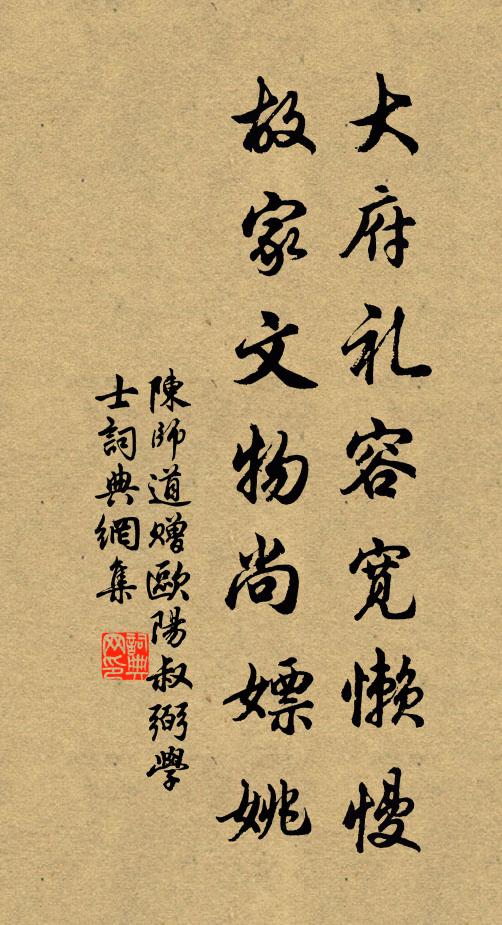 大府礼容宽懒慢
故家文物尚嫖姚
陳師道贈歐陽叔弼學
士詞典網集
詞典
网印